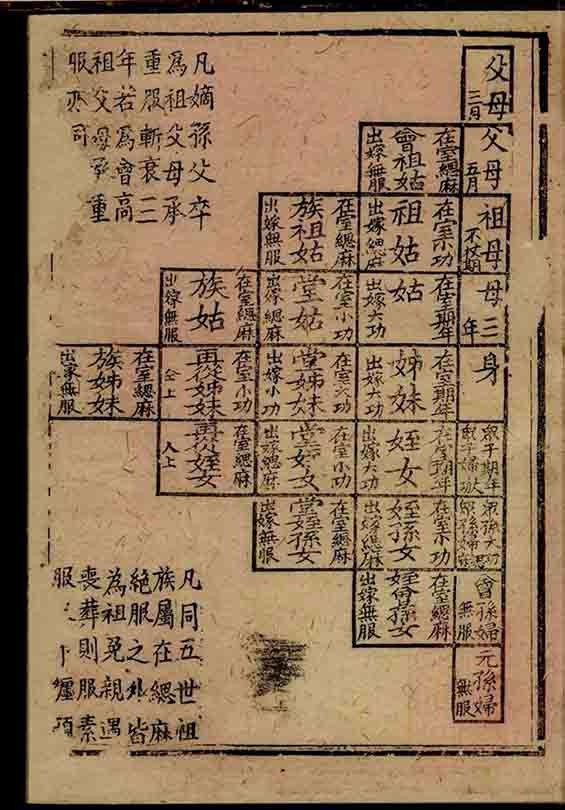 父母
三月
父母
五月
祖母
不杖期
母三年
身
衆子期年
衆孫大功
曾孫婦
無服
元孫婦
無服
在室緦麻
曾祖姑
出嫁無服
在室小功
祖姑
出嫁緦麻
在室期年
姑
出嫁大功
在室期年
姊妹
出嫁大功
在室期年
姪女
出嫁大功
在室小功
姪孫女
出嫁緦麻
在室緦麻
姪曾孫女
出嫁無服
在室緦麻
族祖姑
出嫁無服
在室小功
堂姑
出嫁緦麻
在室大功
堂姊妹
出嫁小功
在室小功
堂姪女
出嫁緦麻
在室緦麻
堂姪孫女
出嫁無服
在室緦麻
族姑
出嫁無服
在室小功
再從姊妹
仝上
在室緦麻
再從姪女
人上
在室緦麻
族姊妹
出家無服
凡嫡孫父卒
為祖父母承
重服斬衰三
年若為曾高
祖父母承重
服亦同
凡同五世祖
族屬在緦麻
絕服之外皆
為袒免親遇
喪葬則服素
服